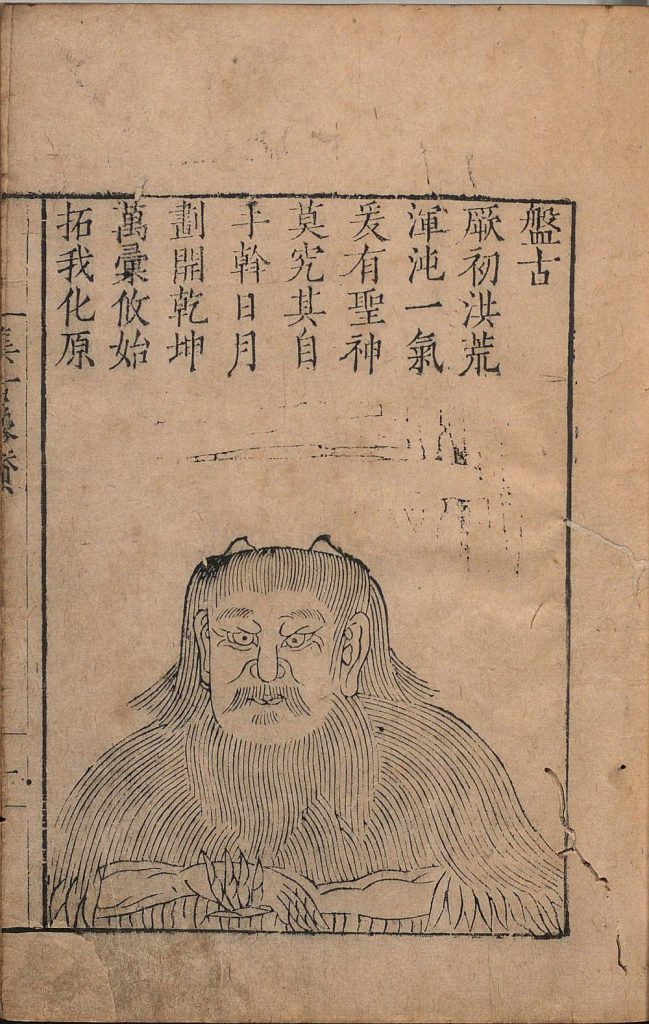 盤古
厥初洪荒
渾沌一氣
爰有聖神
莫究其自
手幹日月
劃開乾坤
萬彙攸始
拓我化原
集古像贊